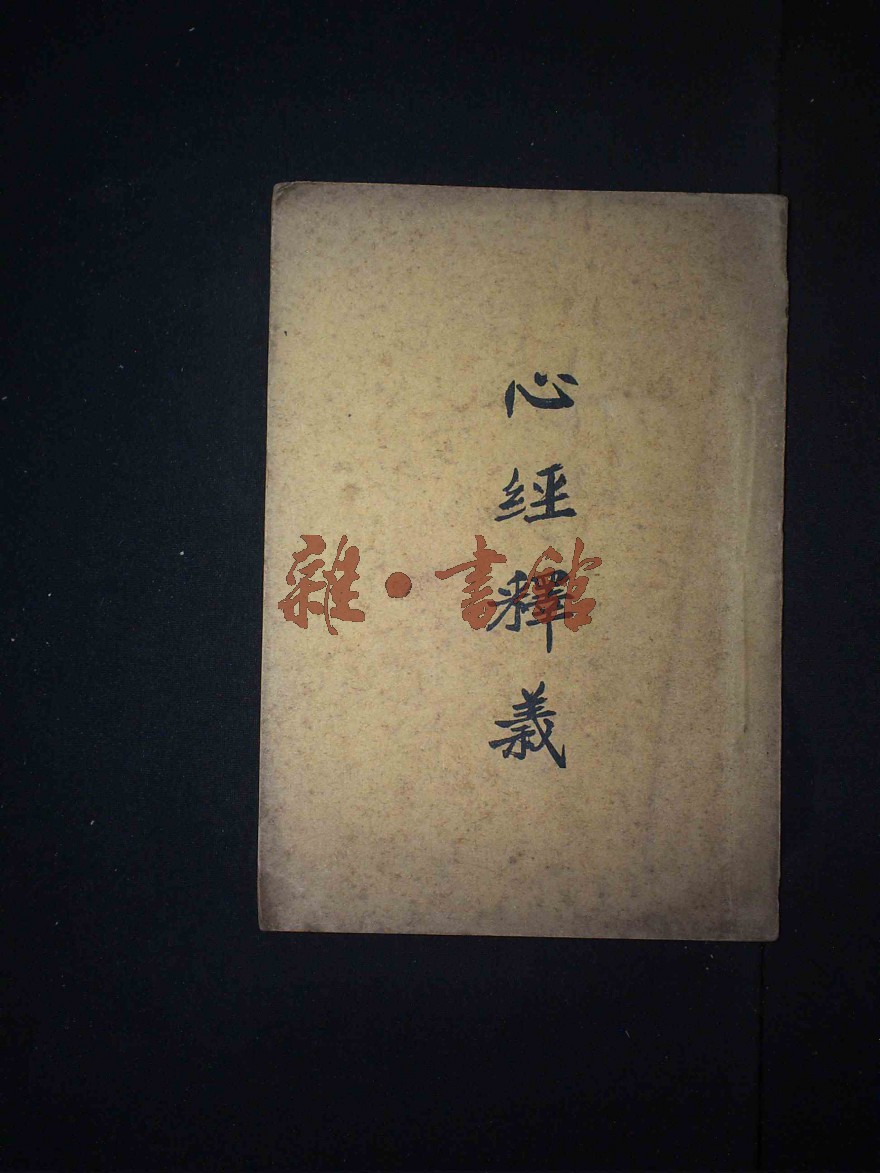 心經釋義
雜·書館